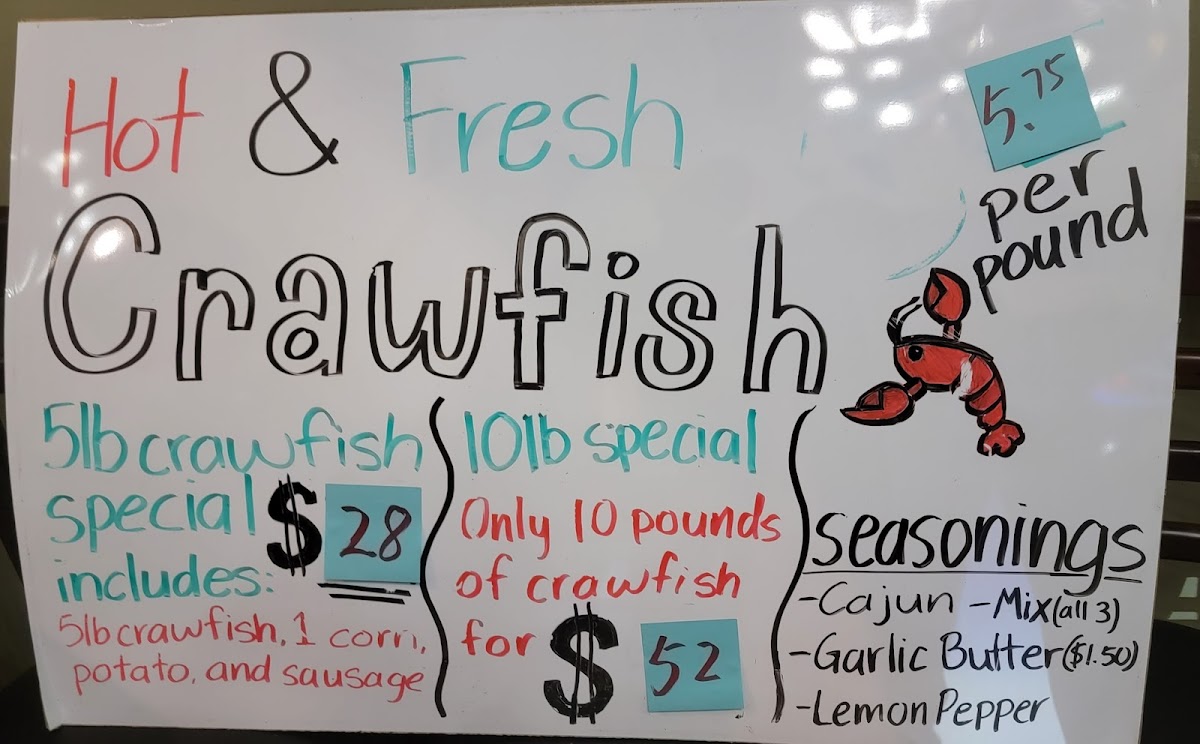 Hot & Fresh
5.75
per
pound
Crawfish
5lb crawfish
special $28
includes:
5lb crawfish, 1 corn,
potato, and sausage
10lb special
Only 10 pounds
of crawfish
for $52
Seasonings
-Cajun -Mix (all 3)
-Garlic Butter ($1.50)
-Lemon Pepper